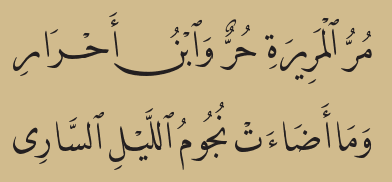 مُرُّ ٱلْمَرِيرَةِ حُرٌّ وَٱبْنُ أَحْرَارِ
وَمَا أَضَاءَتْ نُجُومُ ٱللَّيْلِ ٱلسَّارِى